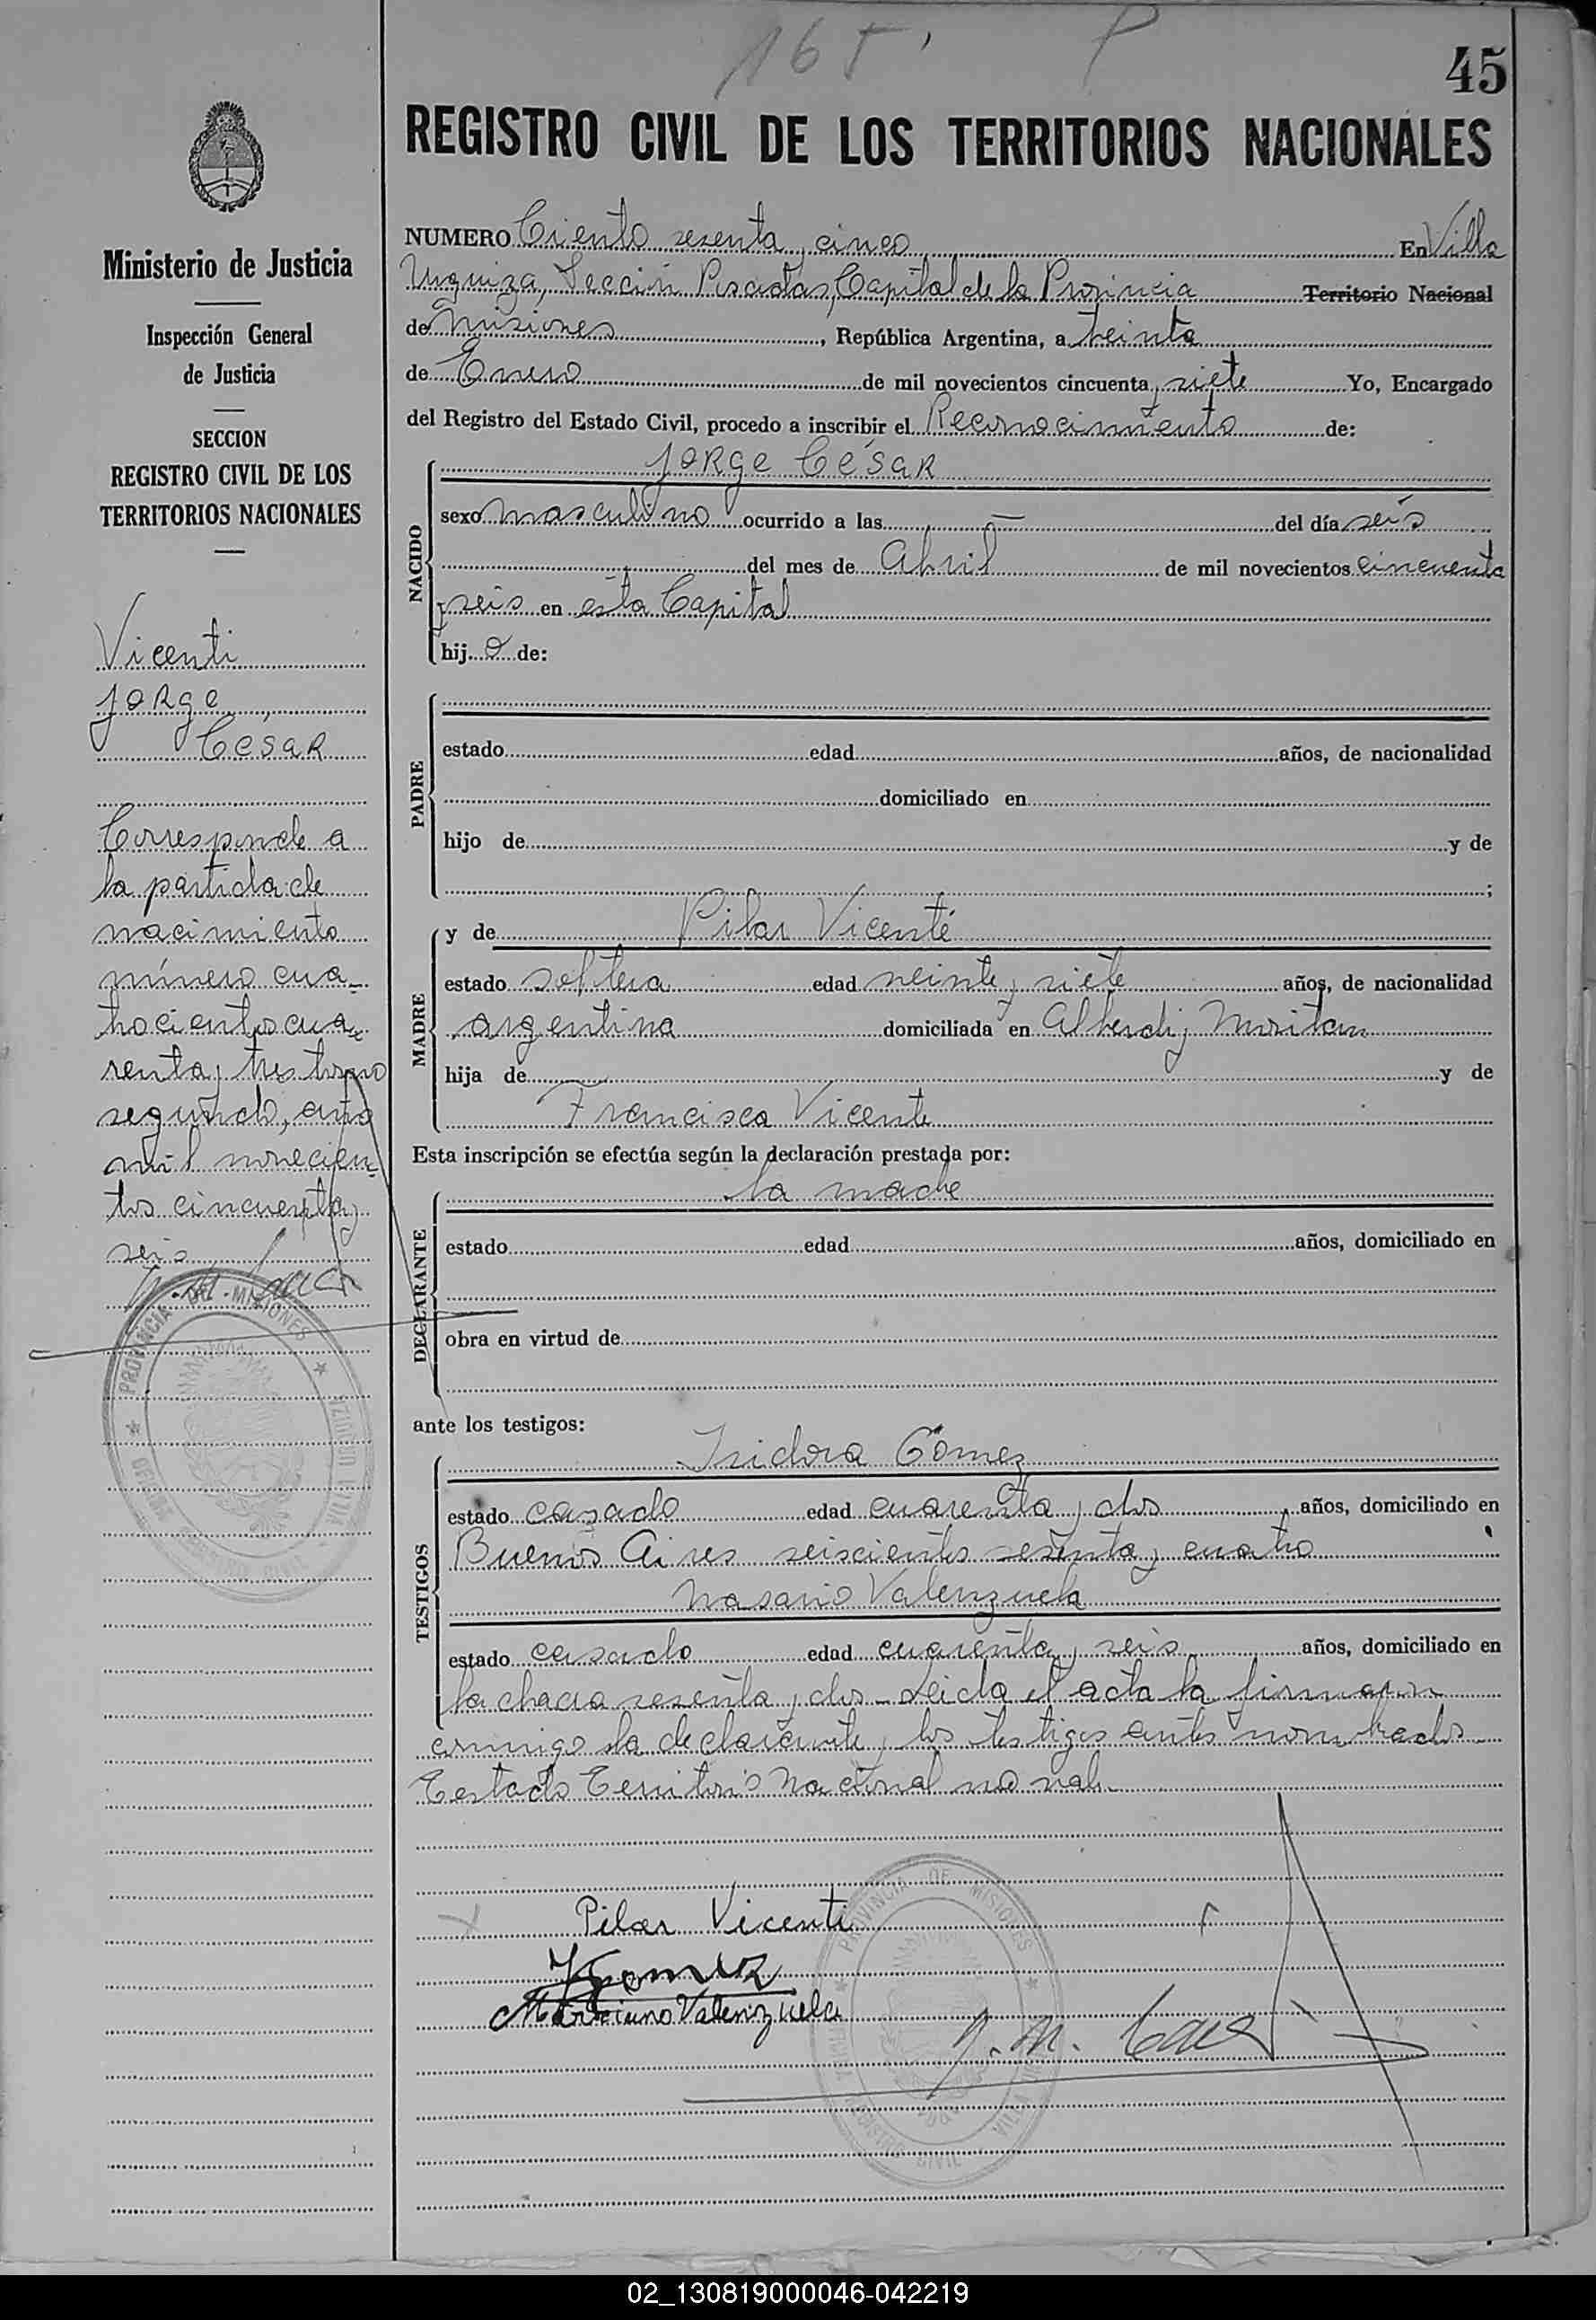 165' P
45
REGISTRO CIVIL DE LOS TERRITORIOS NACIONALES
Ministerio de Justicia
Inspección General
de Justicia
SECCION
REGISTRO CIVIL DE LOS
TERRITORIOS NACIONALES
Vicenti
Jorge
César
Corresponde a
la partida de
nacimiento
número cua-
trocientos cua-
renta y tres tomo
segundo, año
mil novecien
tos cincuenta y
seis
PROVINCIA DE MISIONES
NUMERO Ciento sesenta y cinco En Villa
Urquiza, Sección Posadas, Capital de la Provincia Territorio Nacional
de Misiones, República Argentina, a treinta
de Enero de mil novecientos cincuenta y siete Yo, Encargado
del Registro del Estado Civil, procedo a inscribir el Reconocimiento de:
NACIDO
Jorge César
sexo masculino ocurrido a las — del día seis
del mes de Abril de mil novecientos cincuenta
y seis en esta Capital
hijo de:
PADRE
estado edad años, de nacionalidad
domiciliado en
hijo de y de
;
MADRE
y de Pilar Vicenté
estado soltera edad veinte y siete años, de nacionalidad
argentina domiciliada en Alberdi y
hija de y de
Francisca Vicente
Esta inscripción se efectúa según la declaración prestada por:
DECLARANTE
la madre
estado edad años, domiciliado en
obra en virtud de
ante los testigos:
TESTIGOS
Isidora Gómez
estado casado edad cuarenta y dos años, domiciliado en
Buenos Aires seiscientos sesenta y cuatro
Valenzuela
estado casado edad cuarenta y seis años, domiciliado en
la chacra sesenta y dos - Leida el acta la firmaron
conmigo la declarante y los testigos antes nombrados
Testado Territorio Nacional no vale
Pilar Vicenti
Gomez
Marciano Valenzuela
PROVINCIA DE MISIONES
REGISTRO CIVIL VILLA
02_130819000046-042219